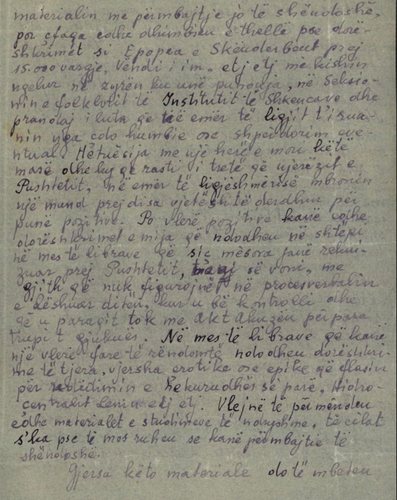 materialin, me përmbajtje jo të shëndoshë,
por çfaqa edhe dhimbien e thellë pse dorë-
shkrimet si Epopea e Skënderbeut prej
15.000 vargje, Vendi i im, etj etj me kishin
ngelur në zyrën ku unë punoja, në Seksio-
nin e folklorit të Institutit të Shkencave dhe
prandaj i luta që në emër të ligjit t'i rua-
nin nga çdo humbje ose shpërdorim even-
tual. Hetuësija me një herë e mori këtë
masë dhe ky qe rasti i tretë që njerëzit e
Pushtetit, në emër të ligjëshmërisë mbronin
një mund prej disa vjetësh të derdhun për
punë pozitive. Po vlerë pozitive kanë edhe
dorëshkrimet e mija që ndodhen në shtëpi
në mes të librave që siç mësova janë sekues-
truar prej Pushtetit, së voni, me
gjithë që nuk figurojnë në procesverbalin
e lëshuar ditën, kur u bë kontrolli dhe
që u paraqit tok me aktakuzën përpara
trupit gjykues. Në mes të librave që kanë
një vlerë fare të rëndomtë ndodhen dorëshkri-
me të tjera, vjersha erotike ose epike që flasin
për ndërtimin e Hekurudhës së parë, Hidro-
centralit Lenin etj etj. Vlejnë të përmenden
edhe materialet e studimeve të ndryshme, të cilat
s'ka pse të mos ruhen se kanë përmbajtje të
shëndoshë.
Gjersa këto materiale do të mbeten